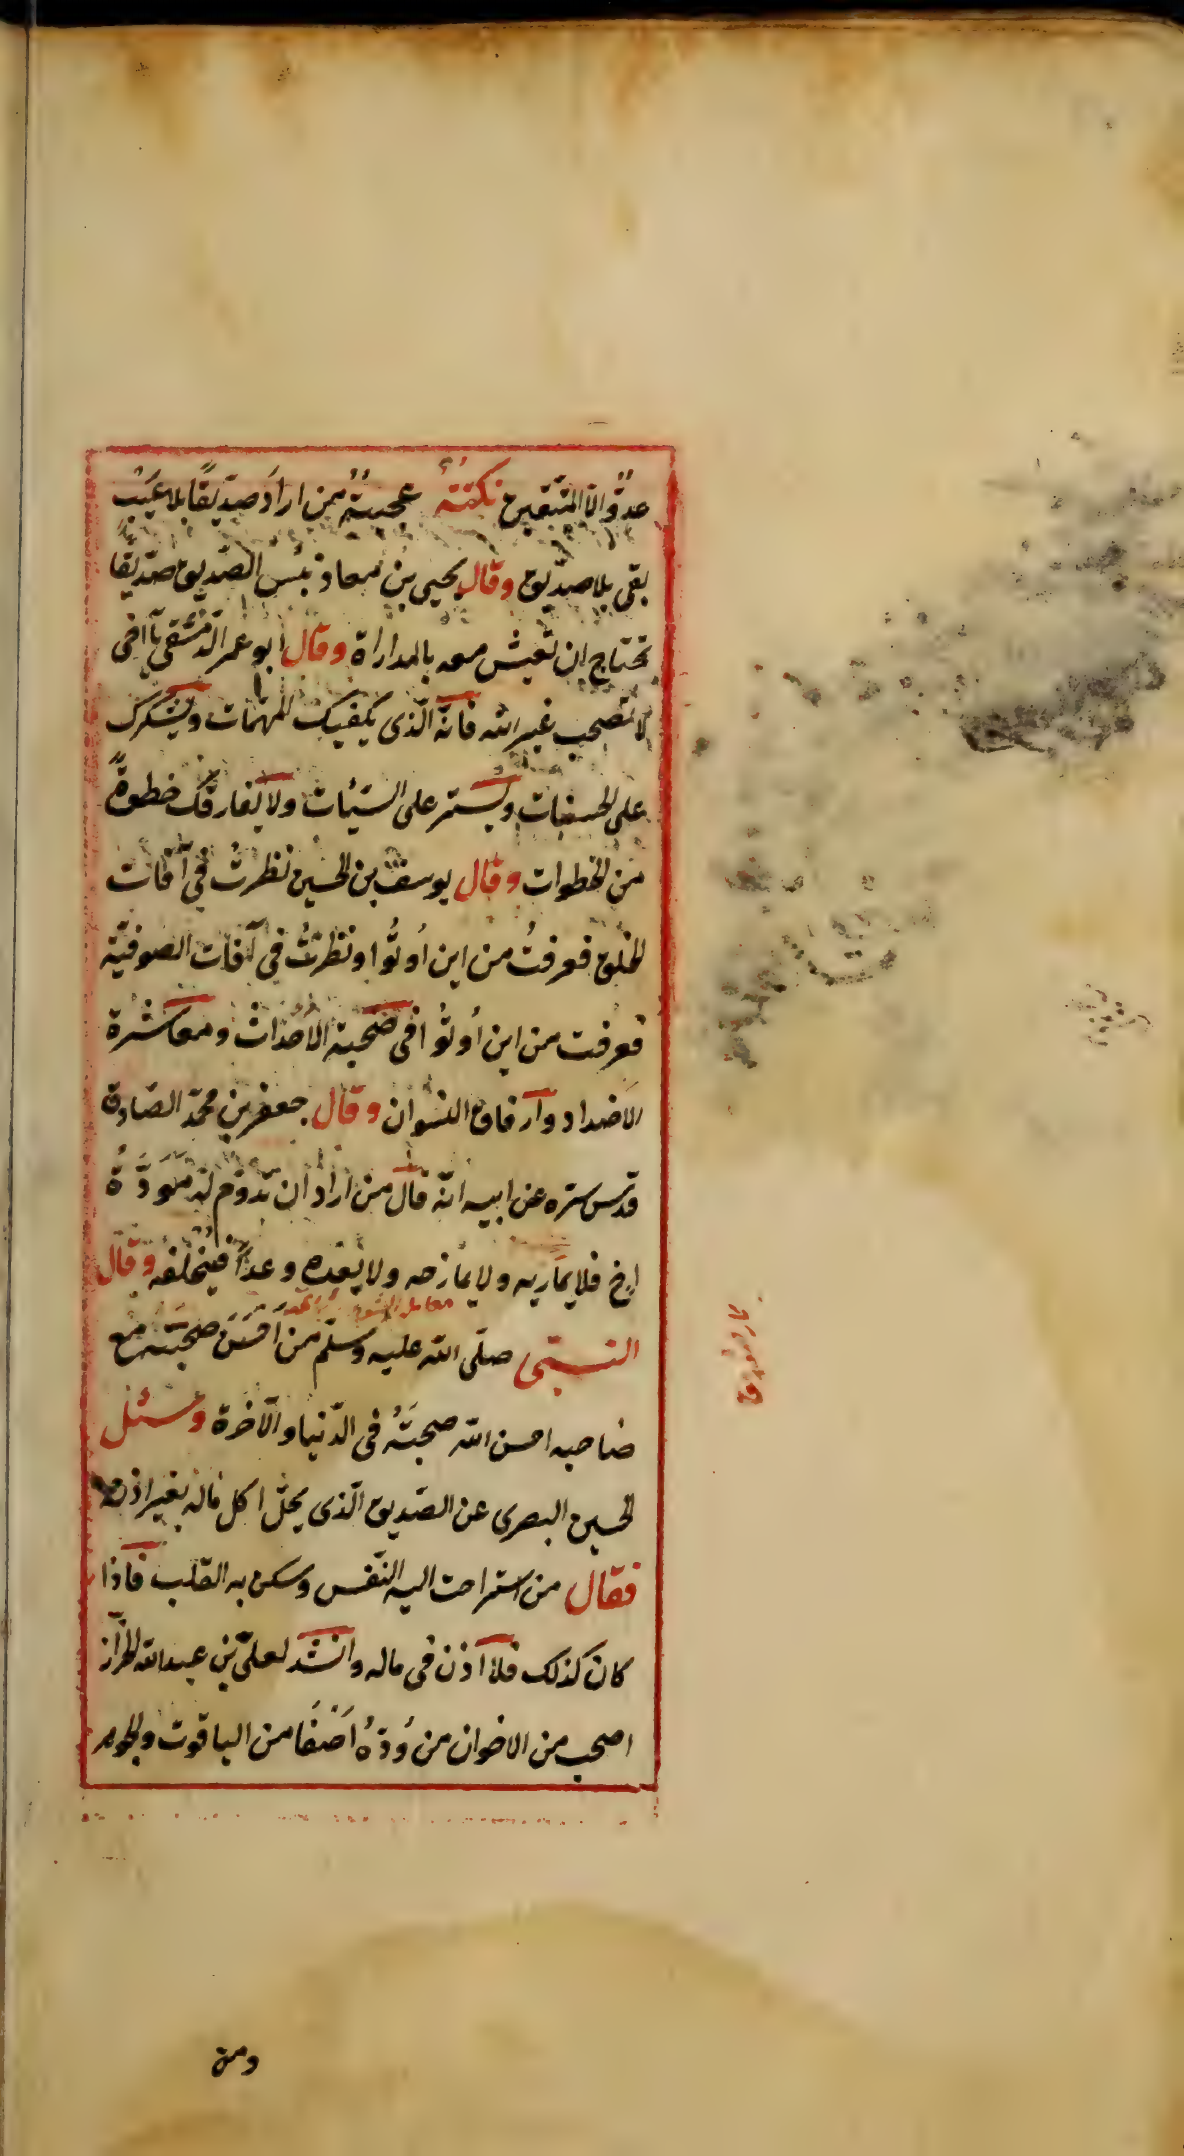 عدوٌّ الّا المتّقين نكتةٌ عجبتُ ممن ارادَ صدّيقًا بلا عَيْبٍ
بقى بلا صدّيق وقال يحيى بن معاذ بئس الصّديق صدّيقًا
تحتاج ان تعيش معه بالمداراة وقال ابو عمر الدّمشقى يآ اخى
لا تصحب غير الله فانّه الّذى يكفيك المهمّات ويشكرك
على الحسنات ويستر على السّيّئات ولا يفارقك خطوةً
من الخطوات وقال يوسف بن الحسين نظرتُ فى آفات
الخلق فعرفتُ من اين اُوتُوا ونظرتُ فى آفات الصوفيّة
فعرفت من اين اُوتُوا فى صحبة الاَحْدَاث ومعاشرة
الاضداد وآرفاق النسوان وقال جعفر بن محمّد الصّادق
قدّس سرّه عن ابيه انّه قال من اراد ان تدوم له مَوَدَّةُ
اخ فلا يماريه ولا يمازحه ولا يعده وعداً فيُخلفه وقال
النبىّ صلّى الله عليه وسلّم من اَحْسَنَ صحبتَه مع
صاحبه احسن الله صحبتَهُ فى الدّنيا والآخرة وسئل
الحسين البصرى عن الصّديق الّذى يحلّ اكل ماله بغير اذنه
فقال من استراحت اليه النّفس وسكن به القلب فاذا
كان كذلك فلا اذن فى ماله وانشد لعلىّ بن عبد الله الخرّاز
اصحب من الاخوان من وُدّهُ اَصْفَا من الياقوت والجوهر
ومن